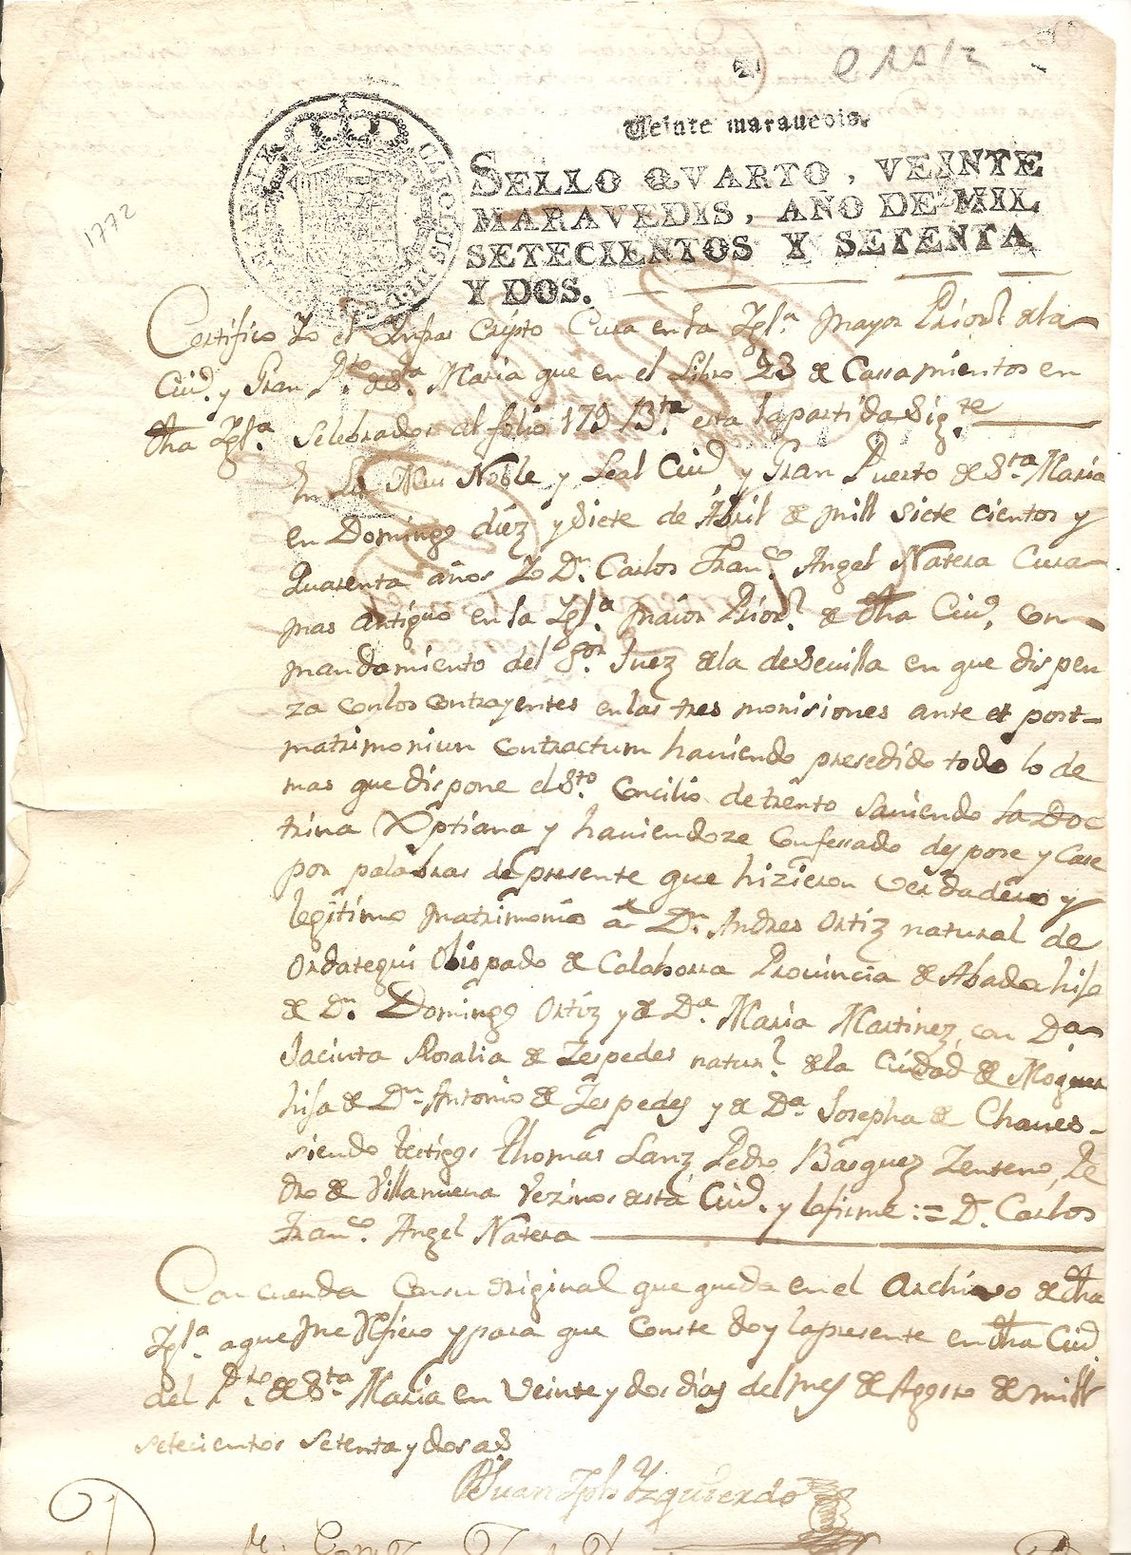 Veinte maravedis.
SELLO QVARTO, VEINTE
MARAVEDIS, AÑO DE MIL
SETECIENTOS Y SETENTA
Y DOS.
CAROLUS III D G
1772
Certifico Yo el Infras cripto Cura en la Ygl.ª mayor Prior.l de la
Ciud. y Gran P.to de S.ta Maria que en el Libro 23 de Cassamientos en
dha Ygl.ª Selebrados al folio 179 B.ta esta la partida Sig.te
En la Mui Noble y Leal Ciud. y Gran Puerto de S.ta Maria
en Domingo diez y Siete de Abril de mill siete cientos y
Quarenta años Yo D.n Carlos Fran.co Angel Natera Cura
mas antiguo en la Ygl.ª maior Prior.l de dha Ciud. con
mandamiento del S.or Juez de la de Sevilla en que dispen
za con los contrayentes en las tres monisiones ante et post
matrimoniun contractum haviendo presedido todo lo de
mas que dispone el S.to Concilio de trento saviendo la Doc
trina Xptiana y haviendoze confessado despose y Case
por palabras de presente que hizieron verdadero y
legitimo matrimonio a D.n Andres Ortiz natural de
Ordategui Obispado de Calahorra Provincia de Abada hijo
de D.n Domingo Ortiz y de D.ª Maria Martinez, con D.ª
Jacinta Rosalia de Zespedes natur.l de la Ciudad de Moguer
hija de D.n Antonio de Zespedes y de D.ª Josepha de Chaves
siendo testigos Thomas Lanz, Pedro Basquez Zenteno, Pe
dro de Villanueva Vezinos desta Ciud. y lo firme := D. Carlos
Fran.co Angel Natera
Concuerda con su original que queda en el Archivo de dha
Ygl.ª a que me Refiero y para que Conste doy la presente en dha Ciud.
del P.to de S.ta Maria en Veinte y dos dias del mes de Agosto de mill
setecientos setenta y dos as
Juan Jph. Yzquierdo